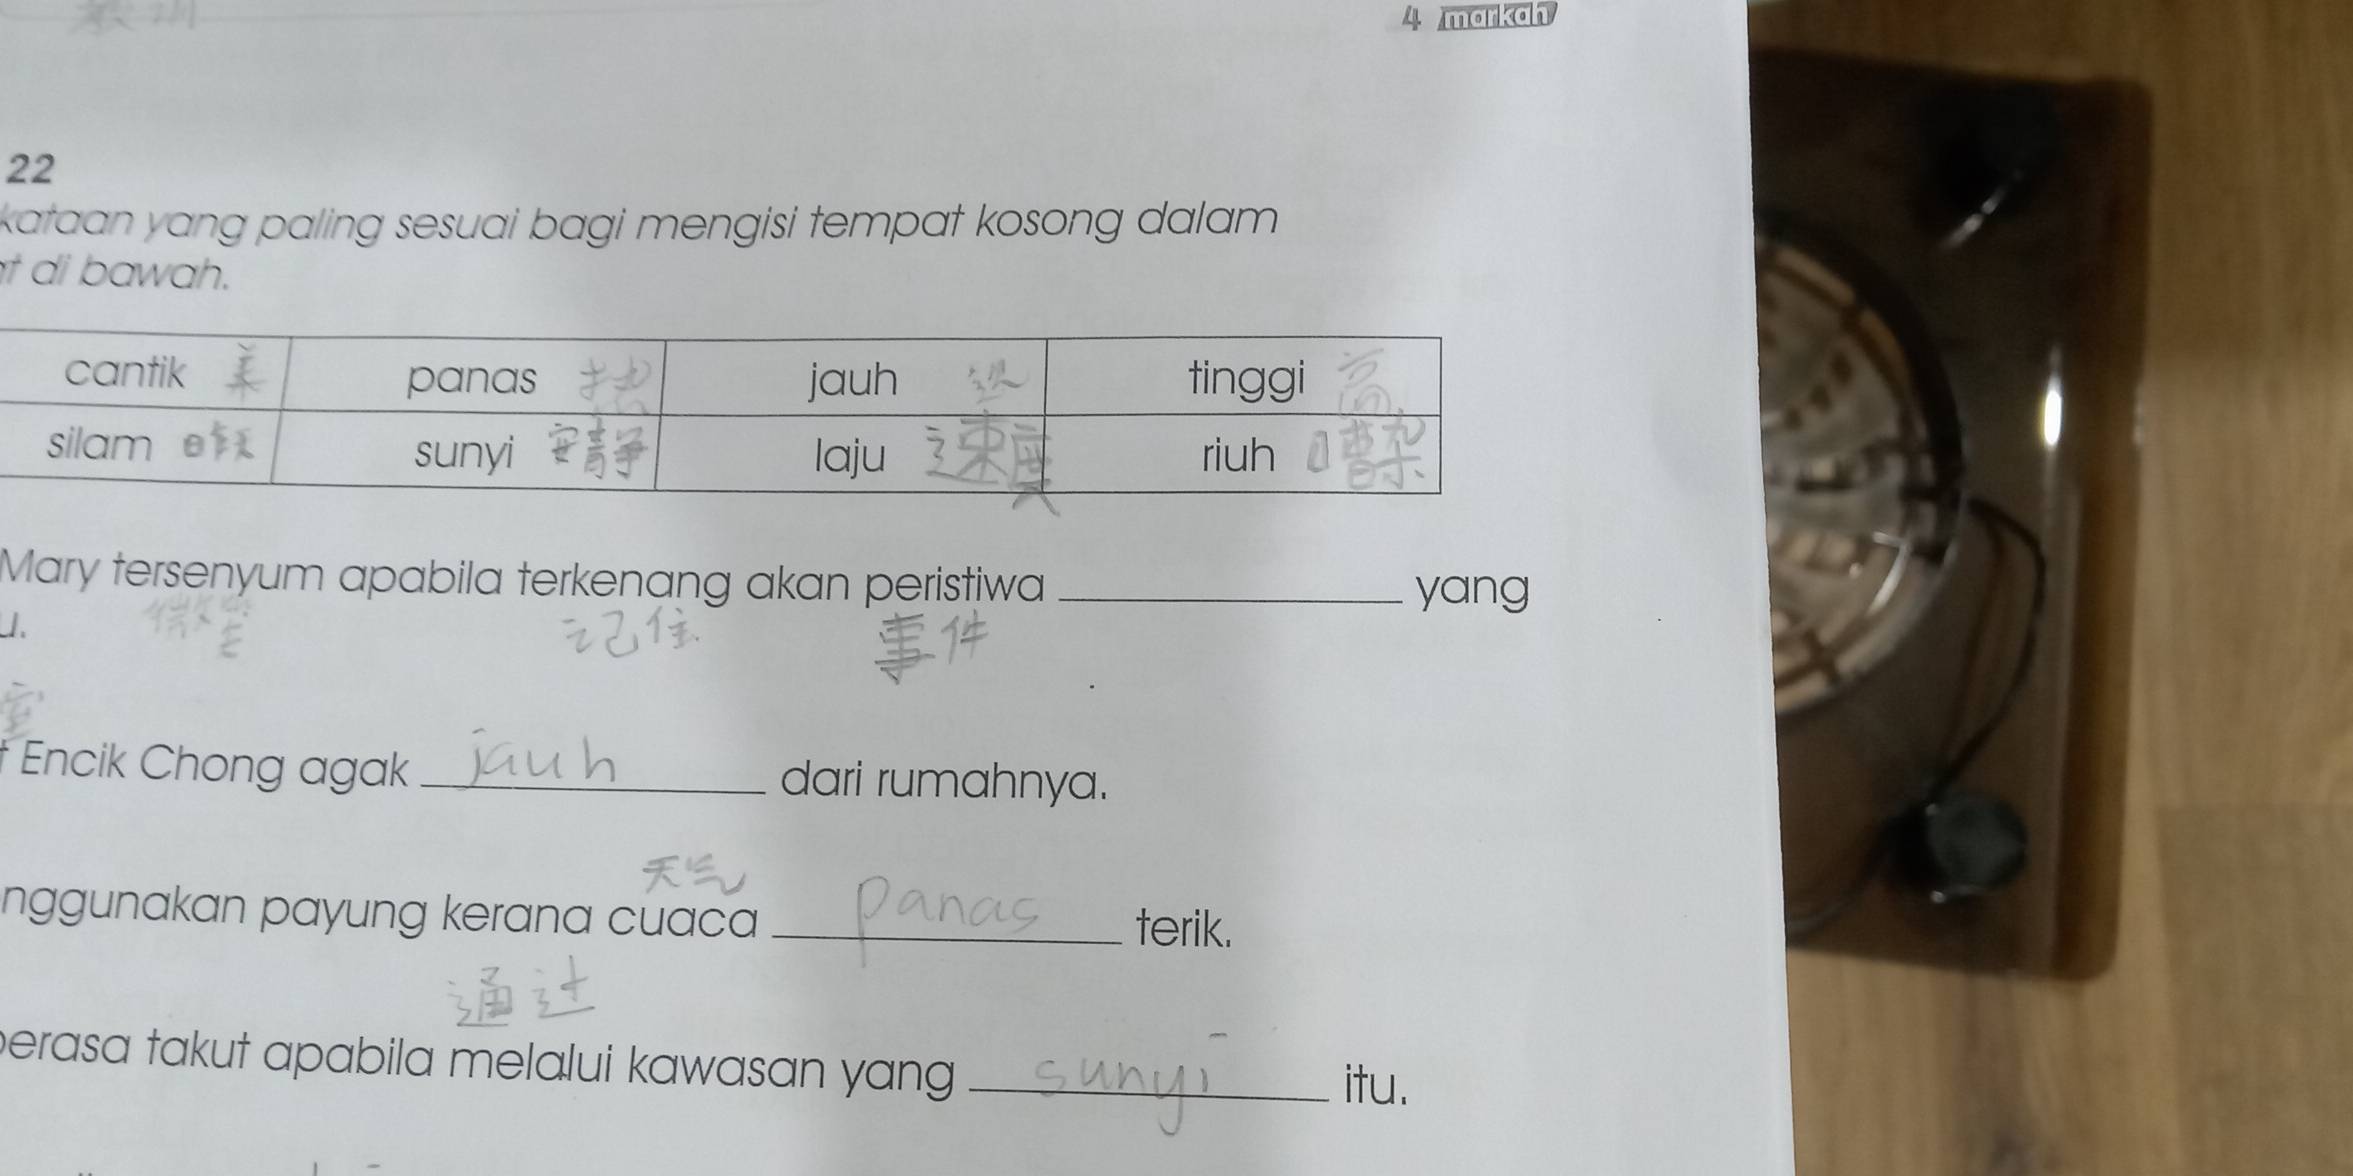 4 markah
22
kataan yang paling sesuai bagi mengisi tempat kosong dalam
di bawah.
cantik 美 panas jauh tinggi 高
silam 昨天 sunyi 安静 laju 速度 riuh 嘈杂
Mary tersenyum apabila terkenang akan peristiwa ____________ yang
微笑 记住 事件
Encik Chong agak jauh dari rumahnya.
天气
nggunakan payung kerana cuaca panas terik.
通过
berasa takut apabila melalui kawasan yang sunyi itu.